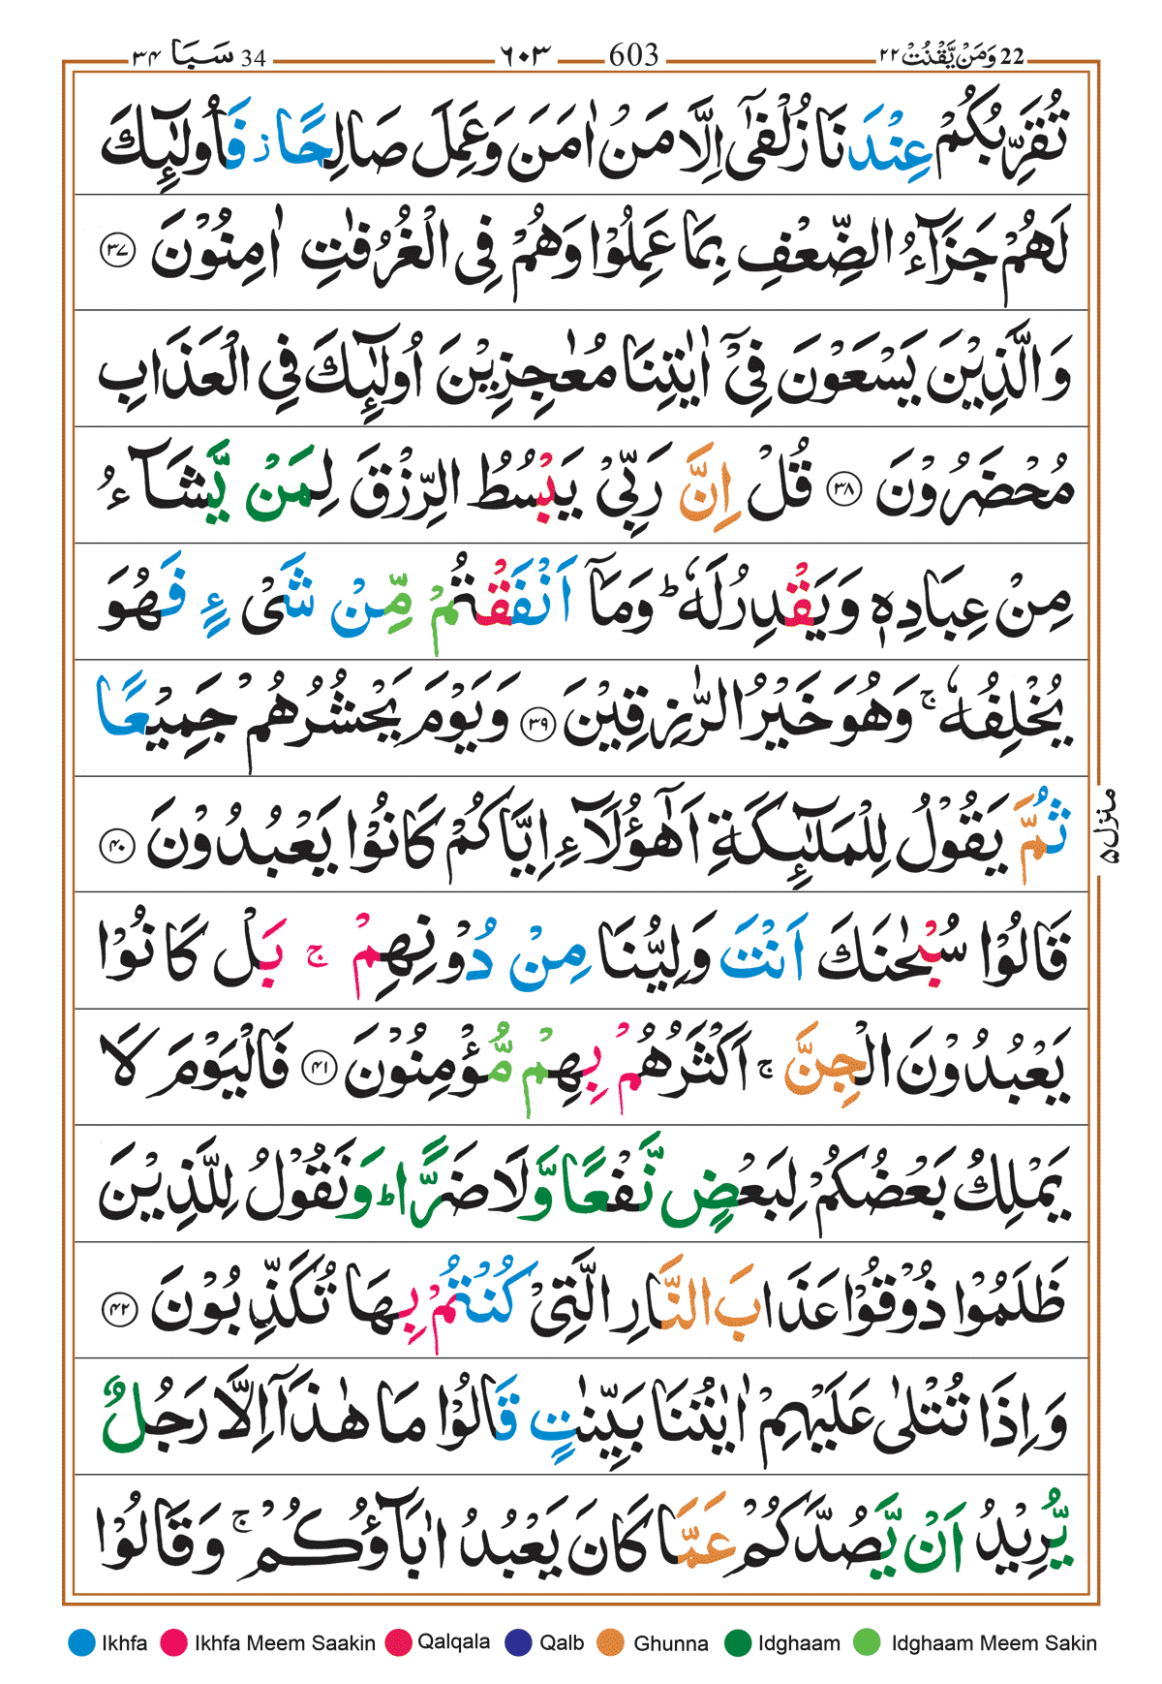 22 وَمَنْ يَّقْنُتْ ٢٢ 603 ٦٠٣ 34 سَبَا ٣٤
تُقَرِّبُكُمْ عِنْدَنَا زُلْفٰٓى اِلَّا مَنْ اٰمَنَ وَعَمِلَ صَالِحًا ز فَاُولٰٓئِكَ
لَهُمْ جَزَآءُ الضِّعْفِ بِمَا عَمِلُوْا وَهُمْ فِى الْغُرُفٰتِ اٰمِنُوْنَ ﴿٣٧﴾
وَالَّذِيْنَ يَسْعَوْنَ فِىْٓ اٰيٰتِنَا مُعٰجِزِيْنَ اُولٰٓئِكَ فِى الْعَذَابِ
مُحْضَرُوْنَ ﴿٣٨﴾ قُلْ اِنَّ رَبِّىْ يَبْسُطُ الرِّزْقَ لِمَنْ يَّشَآءُ
مِنْ عِبَادِهٖ وَيَقْدِرُ لَهٗ ؕ وَمَآ اَنْفَقْتُمْ مِّنْ شَىْءٍ فَهُوَ
يُخْلِفُهٗ ۚ وَهُوَ خَيْرُ الرّٰزِقِيْنَ ﴿٣٩﴾ وَيَوْمَ يَحْشُرُهُمْ جَمِيْعًا
ثُمَّ يَقُوْلُ لِلْمَلٰٓئِكَةِ اَهٰٓؤُلَآءِ اِيَّاكُمْ كَانُوْا يَعْبُدُوْنَ ﴿٤٠﴾
منزل ٥
قَالُوْا سُبْحٰنَكَ اَنْتَ وَلِيُّنَا مِنْ دُوْنِهِمْ ۚ بَلْ كَانُوْا
يَعْبُدُوْنَ الْجِنَّ ۚ اَكْثَرُهُمْ بِهِمْ مُّؤْمِنُوْنَ ﴿٤١﴾ فَالْيَوْمَ لَا
يَمْلِكُ بَعْضُكُمْ لِبَعْضٍ نَّفْعًا وَّلَا ضَرًّا ؕ وَنَقُوْلُ لِلَّذِيْنَ
ظَلَمُوْا ذُوْقُوْا عَذَابَ النَّارِ الَّتِىْ كُنْتُمْ بِهَا تُكَذِّبُوْنَ ﴿٤٢﴾
وَاِذَا تُتْلٰى عَلَيْهِمْ اٰيٰتُنَا بَيِّنٰتٍ قَالُوْا مَا هٰذَآ اِلَّا رَجُلٌ
يُّرِيْدُ اَنْ يَّصُدَّكُمْ عَمَّا كَانَ يَعْبُدُ اٰبَآؤُكُمْ ۚ وَقَالُوْا
Ikhfa Ikhfa Meem Saakin Qalqala Qalb Ghunna Idghaam Idghaam Meem Sakin